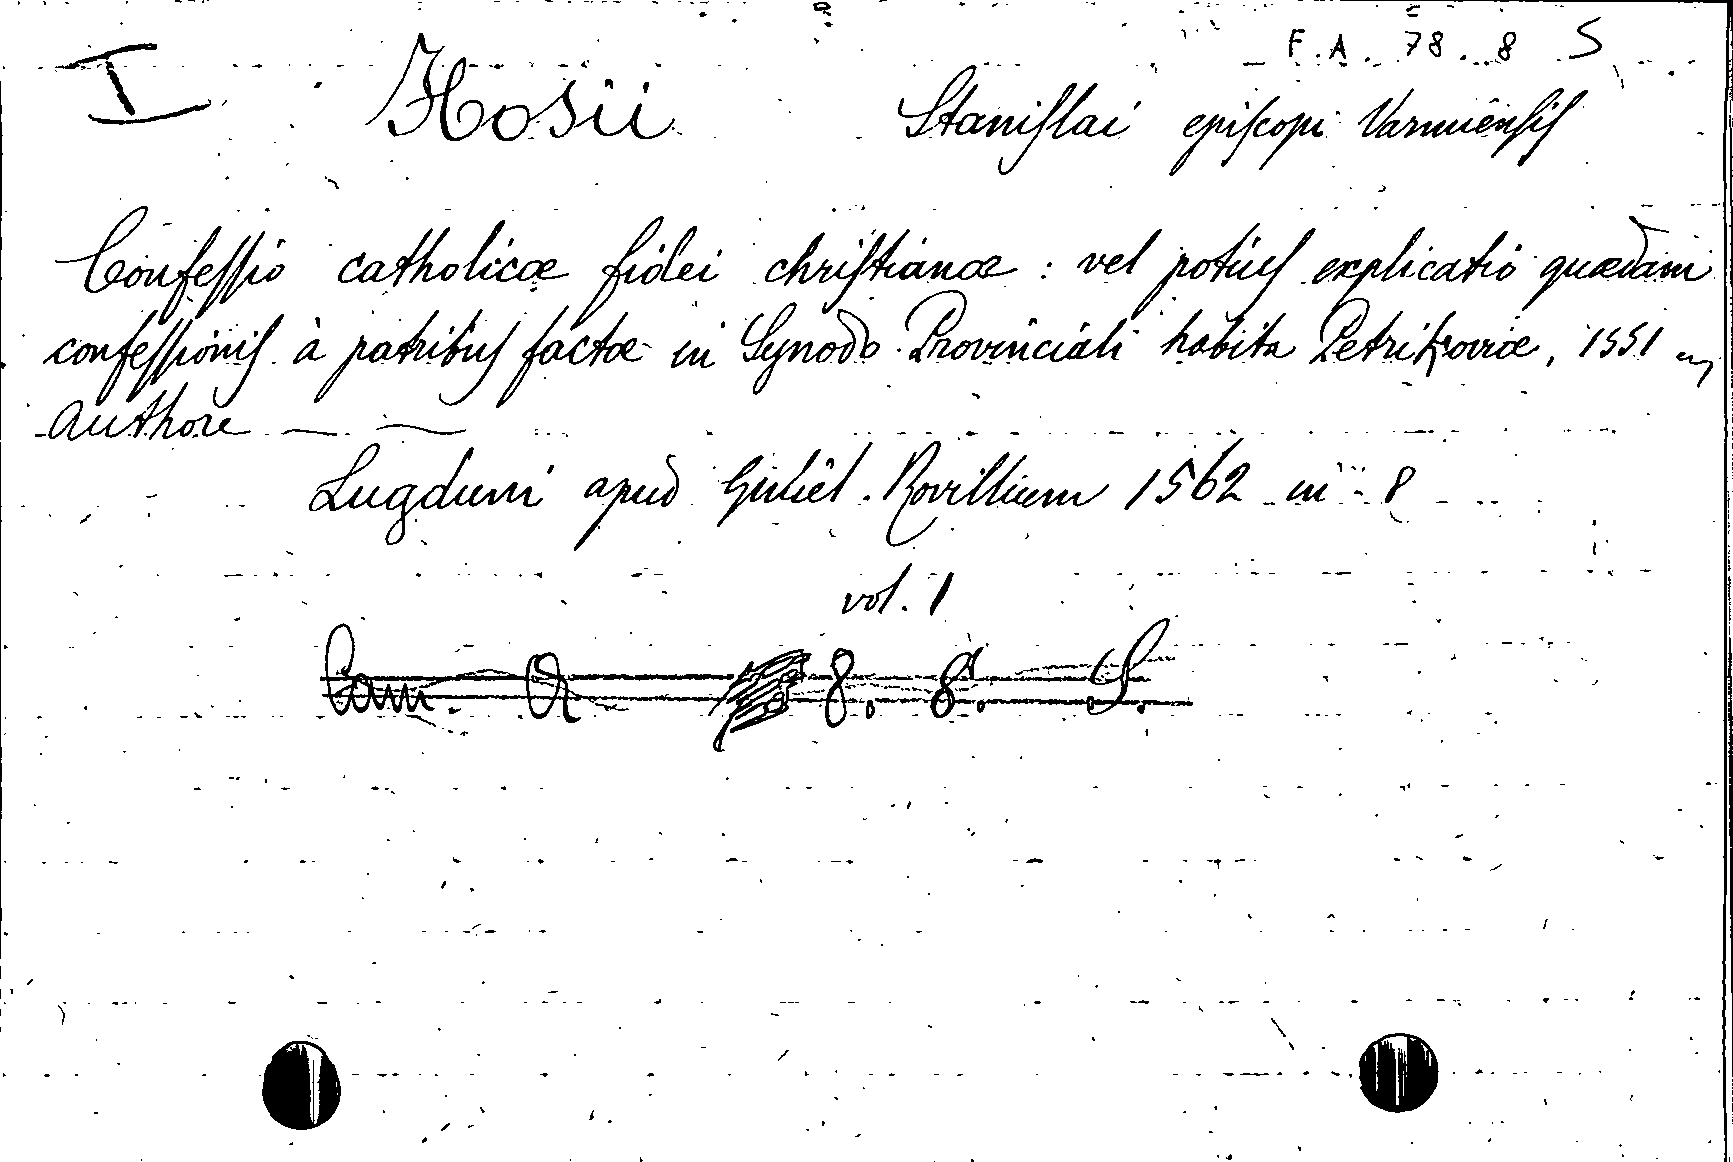 F.A. 78.8 S
I Hosii Staniſlai epiſcopi Varmienſiſ
Confeſſio catholicæ fidei chriſtianæ : vel potiuſ explicatio quædam
confeſſioniſ à patribuſ factæ in Synodo Provinciali habita Petrikoviæ, 1551
Authore — —
Lugduni apud Guliel. Rovillium 1562 in-8
vol. 1
Cam. A 8. 8. S.